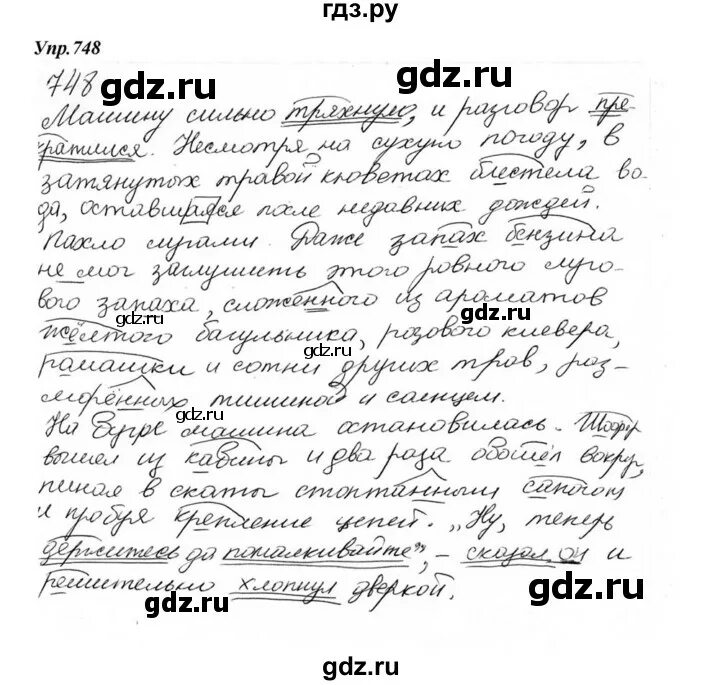 гдз.ру
Упр.748
748 gdz.ru gdz.ru
Машину сильно тряхнуло, и разговор пре-
кратился. Несмотря на сухую погоду, в
затянутых травой кюветах блестела во-
да, оставшаяся после недавних дождей.
Пахло лугами. Даже запах бензина
не мог заглушить этого ровного луго-
вого запаха, сложенного из ароматов
gdz.ru gdz.ru
жёлтого багульника, розового клевера,
рамашки и сотни других трав, раз-
морённых тишиной и солнцем.
gdz.ru gdz.ru
На бугре машина остановилась. Шофёр
вышел из кабины и два раза обошёл вокруг,
пиная в скаты стоптанными сапогом
и пробуя крепление цепей. „Ну, теперь
держитесь да помалкивайте", – сказал он и
решительно хлопнул дверкой.
gdz.ru gdz.ru
gdz.ru